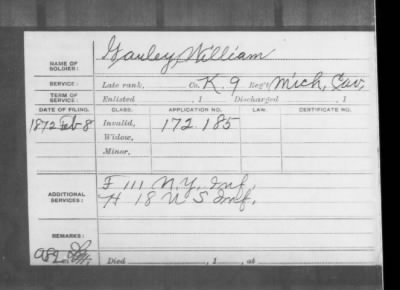 NAME OF SOLDIER: Gauley, William
SERVICE: Late rank, Co. K. 9 Reg't Mich. Cav.
TERM OF SERVICE: Enlisted , 1 Discharged , 1
DATE OF FILING. CLASS. APPLICATION NO. LAW. CERTIFICATE NO.
1872 Feb 8 Invalid, 172.185
Widow,
Minor,
ADDITIONAL SERVICES: F 111 N.Y. Inf.
H 18 U S Inf.
REMARKS:
Died , 1 , at